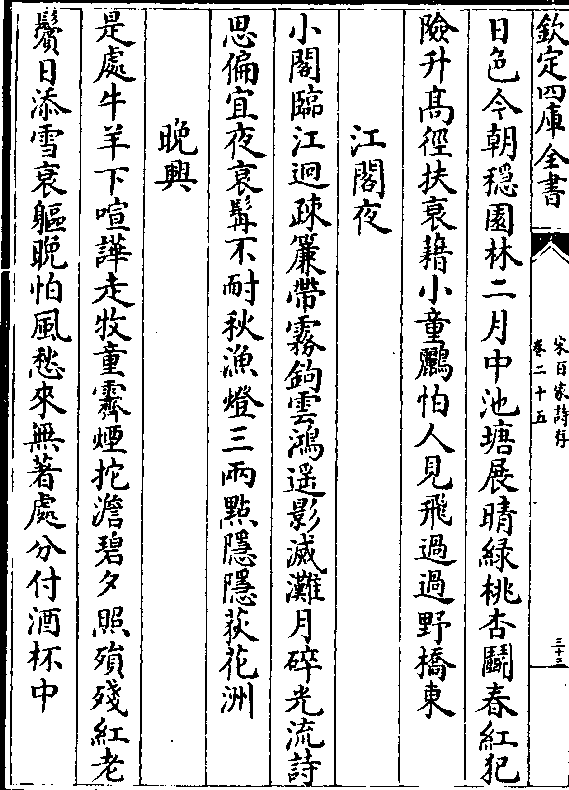 欽定四庫全書
宋百家詩存
卷二十五
三十三
日色今朝穩園林二月中池塘展晴緑桃杏鬭春紅犯
險升髙徑扶衰藉小童鸝怕人見飛過過野橋東
江閣夜
小閣臨江迥疎簾帶霧鉤雲鴻遥影滅灘月碎光流詩
思偏宜夜衰髯不耐秋漁燈三兩點隱隱荻花洲
晩興
是處牛羊下喧譁走牧童霽煙拕澹碧夕照殞殘紅老
鬢日添雪衰軀晩怕風愁來無著處分付酒杯中